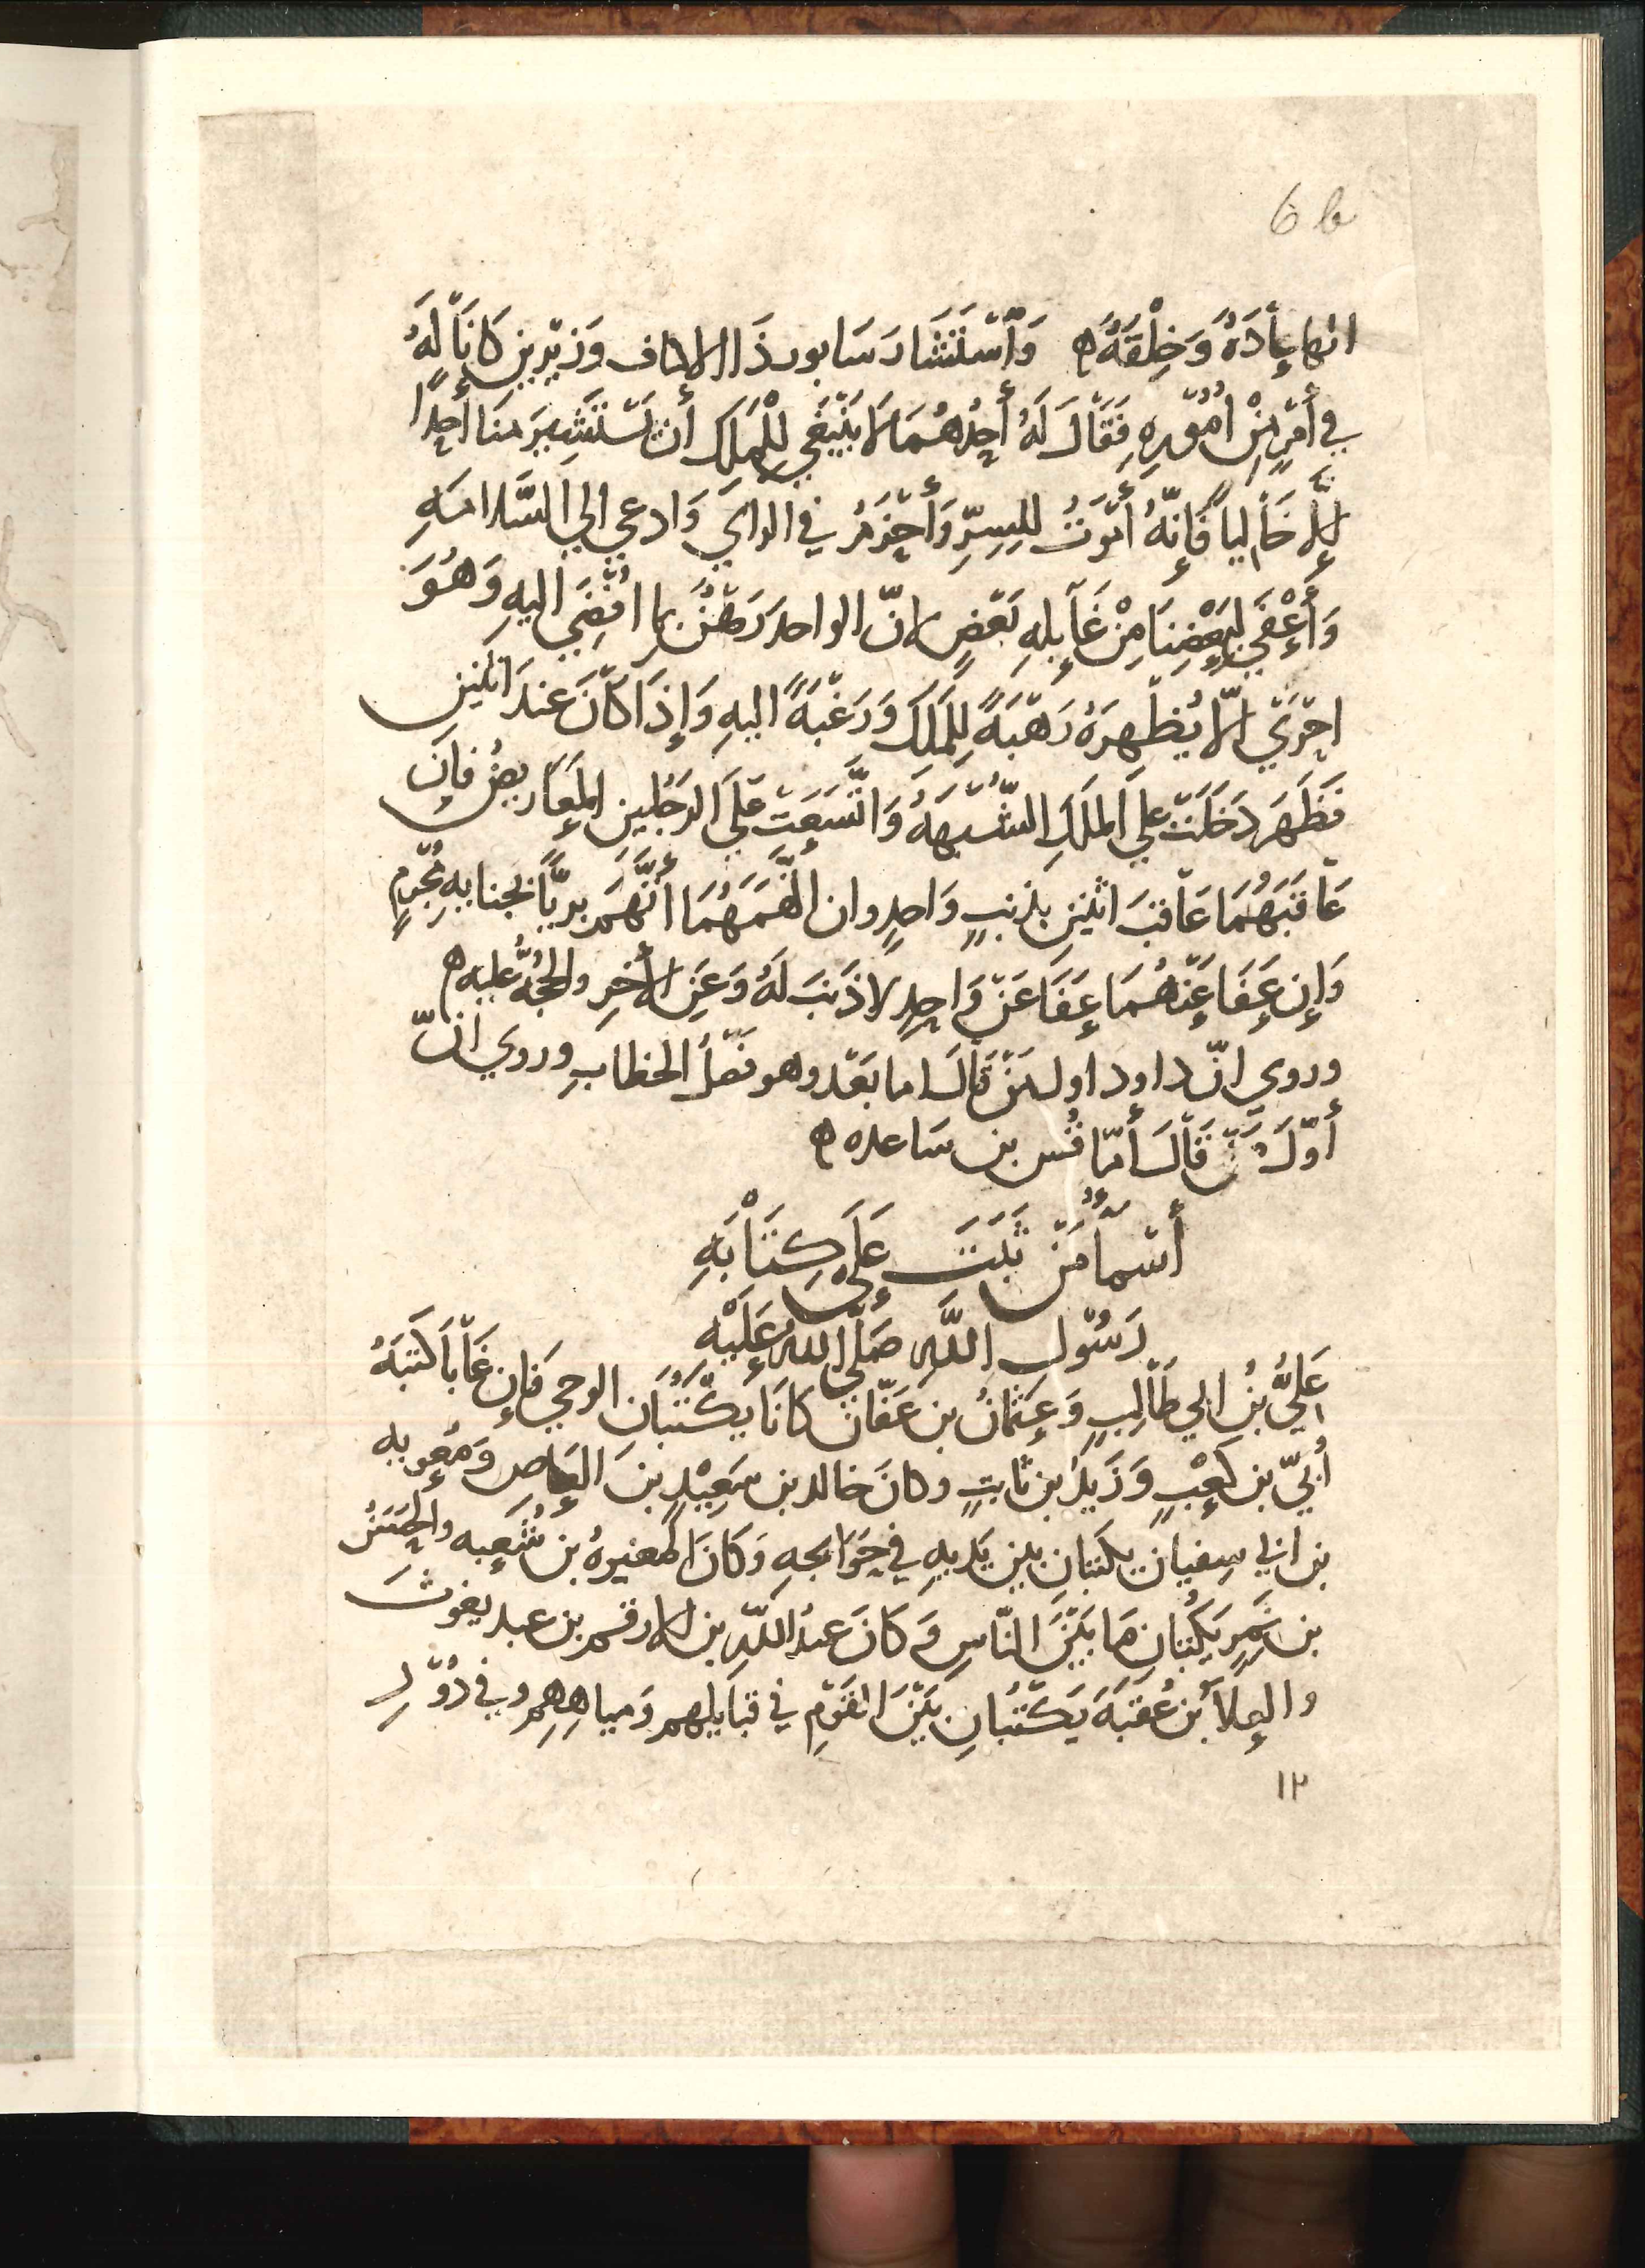 6 b
انها عادَةٌ وَخِلْقَةٌ ه وَاسْتَشَارَ سَابور ذَا الاكتاف وَزيْرين كانَا لَهُ
في أَمْرٍ مِنْ أُمُوْرِهِ فَقَالَ لَهُ أَحَدُهُمَا لَا يَنْبَغي لِلْمَلِكِ أَن يَسْتَشِيرَ مِنَا أَحدًا
إِلَّا خَاليا فَإِنّهُ أَمْوَتُ لِلسِرِّ وَأَحْزَمُ في الراي وَادعي الي السَّلامَهِ
وَأَعْفَي لِبَعْضِنَا مِنْ غَايلهِ بَعْضٍ لانّ الواحدَ رَهْنٌ بما افْضِيَ اليهِ وَهُوَ
احْرَيْ الّا يُظْهِرَهُ رَهْبَةً لِلمَلِكِ وَرَغْبَةً اليهِ وَإِذَا كَانَ عندَ اثنين
فَظَهَرَ دَخَلَتْ علي المَلكِ الشُّبْهَهُ وَاتَّسَعَتْ عَلَي الرَجُلينِ المَعَاريضُ فَإِن
عَاقَبَهُمَا عَاقَبَ اثنَينِ بذَنبٍ وَاحدٍ وان اتَّهَمَهُمَا أتَّهَمَ بريًّا بجنايهِ مُجْرِمٍ
وَإِن عَفَا عَنْهُمَا عَفَا عَنْ وَاحِدٍ لا ذَنبَ لَهُ وَعَنِ الأخرِ والحُجَّهُ عليه ه
وروي انّ داود اول مَنْ قَالَ اما بَعْد وهو فَصْلُ الخطابِ وروي انّ
أوّلَ مَنْ قَالَ أمّا قُس بن سَاعده ه
أَسْمَآءُ مَنْ ثَبَتَ عَلَى كِتَابَهِ
رَسُوْلِ اللَّهِ صَلَّي اللهُ عَلَيْه
عَلِيُّ بنُ ابي طَالبٍ وَعُثمانُ بن عَفّان كانَا يَكْتُبَان الوحي فَإن غَابَا كَتَبَهُ
أُبَيّ بن كَعْبٍ وَزَيدُ بن ثابتٍ وكانَ خالد بن سَعِيْدِ بنَ العَاصِ وَمُعويه
بن ابي سفيان يكتبانِ بين يَديهِ في حَوَايجهِ وَكَانَ المغيرهُ بن شُعبه والحُصَينُ
بن نُمَيرٍ يَكْتُبانِ مَا بَيْنَ النّاسِ وَكَانَ عبدُ اللّهِ بن الارقم بن عبد يغوثَ
والعلآ بْن عُقبَهَ يَكْتُبَانِ بَيْنَ القَوْمِ في قبَايلهِم وَمياهِهِم وفي دُوْرِ
١٢